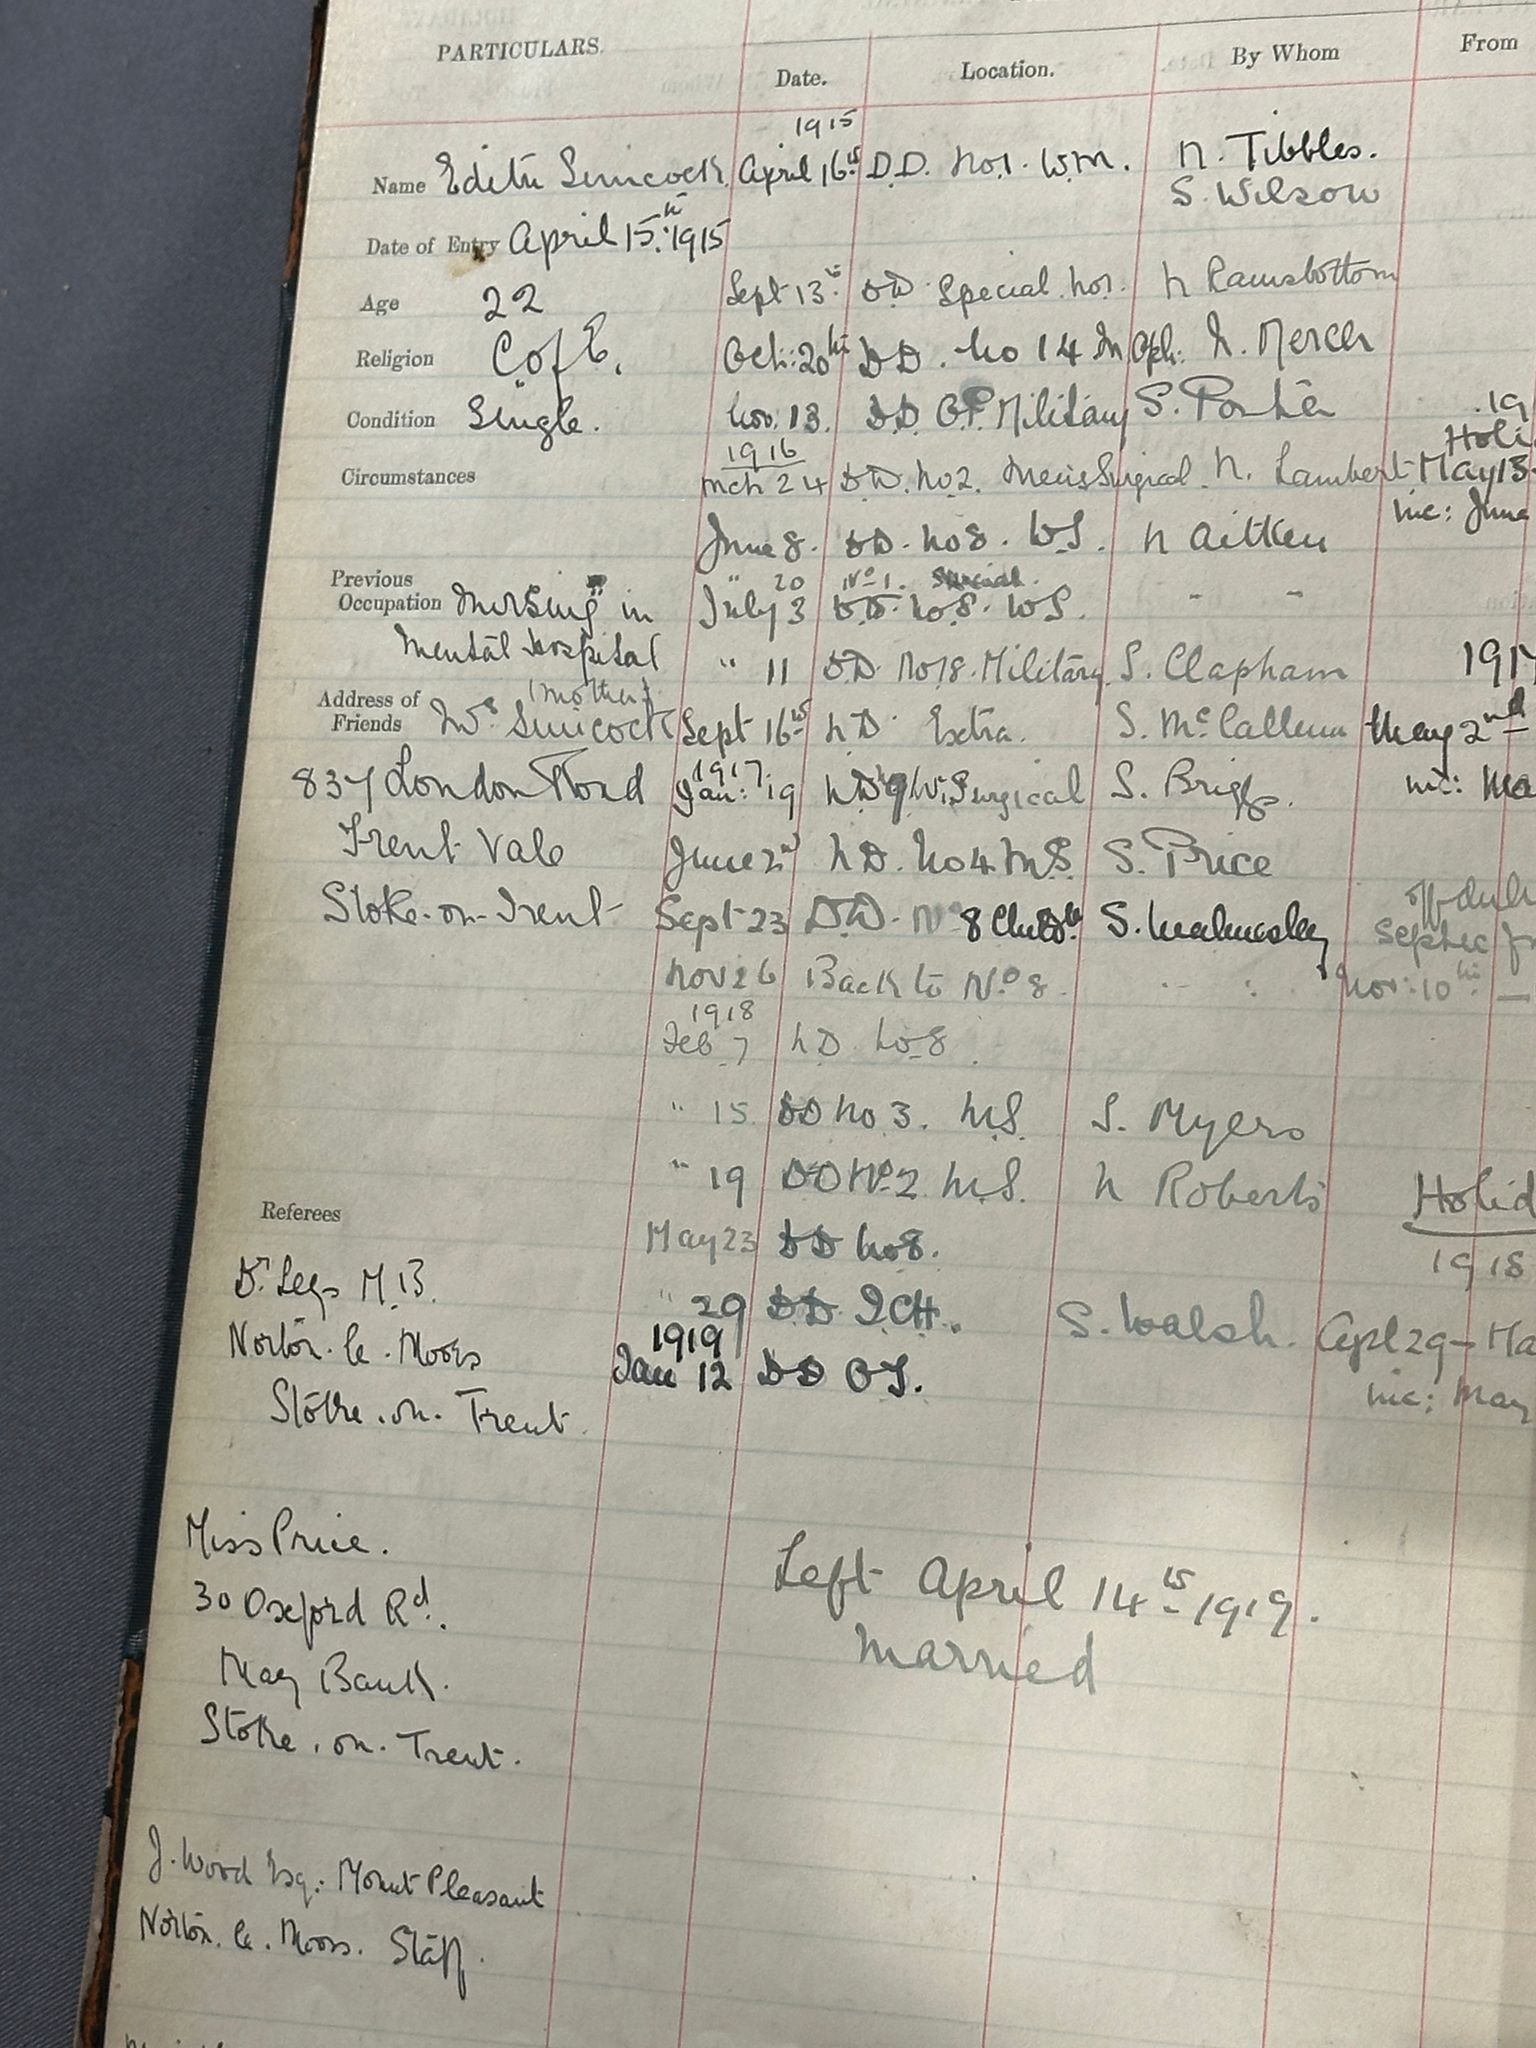 PARTICULARS.
Date. Location. By Whom From
1915
Name Edith Simcock April 16th D.D. No 1. W.M. N. Tibbles.
S. Wilson
Date of Entry April 15th 1915
Age 22 Sept 13th DD Special No 1. N Ramsbottom
Religion C of E. Oct: 20th DD. No 14 M Oph: N. Merch
Condition Single. Nov. 13. DD O.P. Military S. Porter 19
1916 Holi
Circumstances Mch 24 DD. No 2. Men's Surgical. N. Lambert May 13
inc: June
June 8. DD. No 8. W.S. N Aitken
" 20 No 1. Special.
Previous Occupation Nursing in July 3 DD. No 8. W.S. " "
Mental Hospital " 11 DD No 18. Military S. Clapham 1917
(Mother)
Address of Friends Mrs Simcock Sept 16th ND Extra. S. McCallum May 2nd
1917
837 London Road Jan: 19 ND W. Surgical S. Briggs. inc: Ma
Trent Vale June 2nd ND. No 4 M.S. S. Price
Stoke-on-Trent Sept 23 DD. No 8 S. Walmsley off duty
Septic
Nov 26 Back to No 8. " " Nov: 10th —
1918
Feb 7 ND No 8.
" 15 DD No 3. M.S. S. Myers
" 19 DD No 2 M.S. N Roberts Holid
Referees
May 23 DD No 8. 1918
Dr Legs M.B. " 29 DD I.C.H. S. Walsh. Apl 29 – Ma
Norton. le. Moors 1919
Jan 12 DD O.T. inc: May
Stoke. on. Trent
Miss Price.
Left April 14th 1919.
30 Oxford Rd. Married
May Bank.
Stoke. on. Trent.
J. Wood Esq: Mount Pleasant
Norton. le. Moors. Staff.